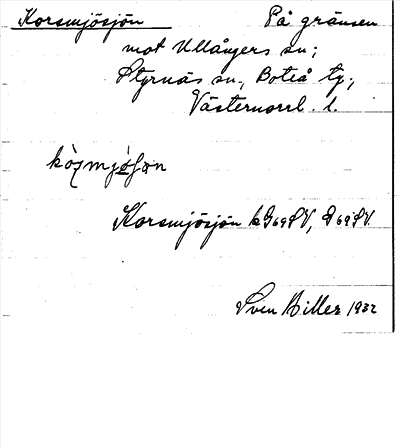 Korsmjösjön På gränsen
mot Ullångers sn;
Styrnäs sn, Boteå tg,
Västernorrl. l.
Korsmjösjön
Sven Hiller 1932